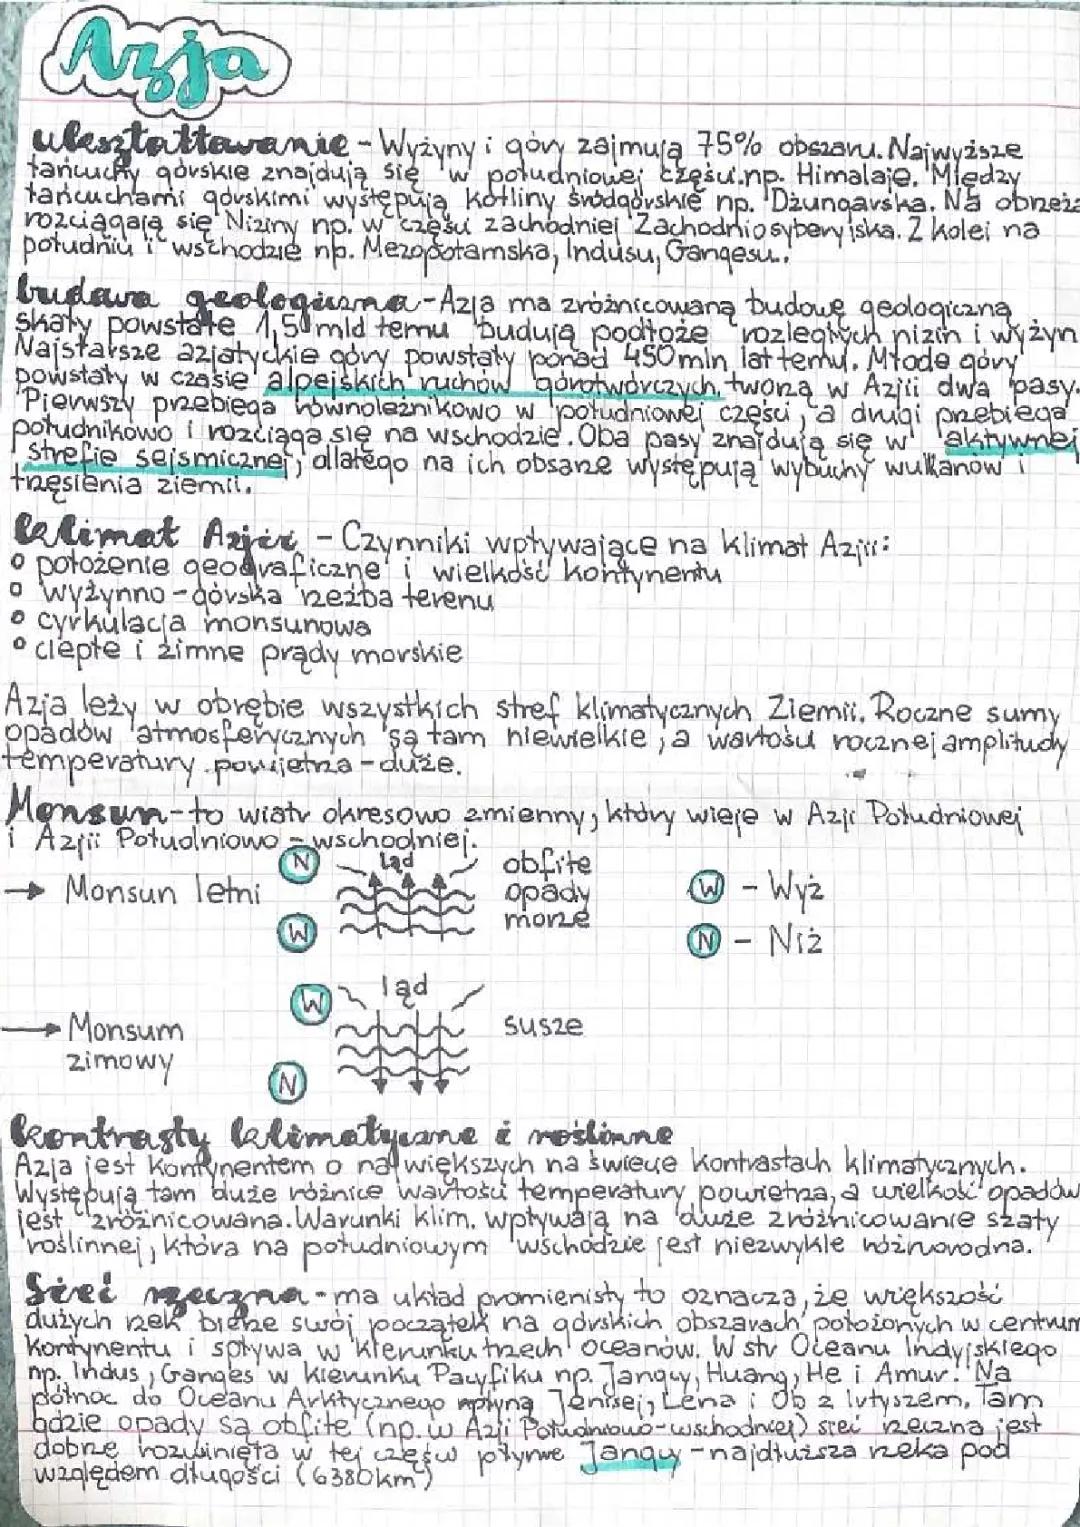 Azja
ukształtowanie - Wyżyny i góry zajmują 75% obszaru. Najwyższe
łańcuchy górskie znajdują się w południowej części.np. Himalaje. Między
łańcuchami górskimi występują kotliny śródgórskie np. Dżungarska. Na obrzeża
rozciągają się Niziny np. w części zachodniej Zachodniosyberyjska. Z kolei na
południu i wschodzie np. Mezopotamska, Indusu, Gangesu..
budowa geologiczna - Azja ma zróżnicowaną budowę geologiczną
skały powstałe 1,50 mld temu budują podłoże rozległych nizin i wyżyn
Najstarsze azjatyckie góry powstały ponad 450 mln lat temu. Młode góry
powstały w czasie alpejskich ruchów górotwórczych tworzą w Azjii dwa pasy.
Pierwszy przebiega równoleżnikowo w południowej części, a drugi przebiega
południkowo i rozciąga się na wschodzie. Oba pasy znajdują się w aktywnej
strefie sejsmicznej, dlatego na ich obsarze występują wybuchy wulkanów i
trzęsienia ziemii.
klimat Azjii - Czynniki wpływające na klimat Azjii:
° położenie geograficzne i wielkość kontynentu
° wyżynno - górska rzeźba terenu
° cyrkulacja monsunowa
° ciepłe i zimne prądy morskie
Azja leży w obrębie wszystkich stref klimatycznych Ziemii. Roczne sumy
opadów atmosferycznych są tam niewielkie, a wartości rocznej amplitudy
temperatury powijetrza - duże.
Monsun - to wiatr okresowo zmienny, który wieje w Azji Południowej
i Azjii Południowo - wschodniej.
N ląd obfite
→ Monsun letni opady W - Wyż
W morze
N - Niż
W ląd
→ Monsum susze
zimowy
N
kontrasty klimatyczne i roślinne
Azja jest kontynentem o największych na świecie kontrastach klimatycznych.
Występują tam duże różnice wartości temperatury powietrza, a wielkość opadów
jest zróżnicowana. Warunki klim. wpływają na duże zróżnicowanie szaty
roślinnej, która na południowym wschodzie jest niezwykle różnorodna.
Sieć rzeczna - ma układ promienisty to oznacza, że większość
dużych rzek bierze swój początek na górskich obszarach położonych w centrum
kontynentu i spływa w kierunku trzech oceanów. W str Oceanu Indyjskiego
np. Indus, Ganges w kierunku Pacyfiku np. Jangcy, Huang, He i Amur. Na
północ do Oceanu Arktycznego płyną Jenisej, Lena i Ob z Irtyszem. Tam
gdzie opady są obfite (np. w Azji Południowo-wschodniej) sieć rzeczna jest
dobrze rozwinięta w tej części płynie Jangcy - najdłuższa rzeka pod
względem długości (6380km)